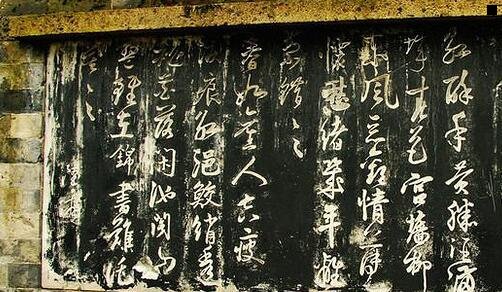 紅酥手黄縢酒滿
城春色宮牆柳
東風惡歡情薄一
懷愁緒幾年離
索錯々々
春如舊人空瘦
淚痕紅浥鮫綃透
桃花落閑池閣山
盟雖在錦書難托
莫々々